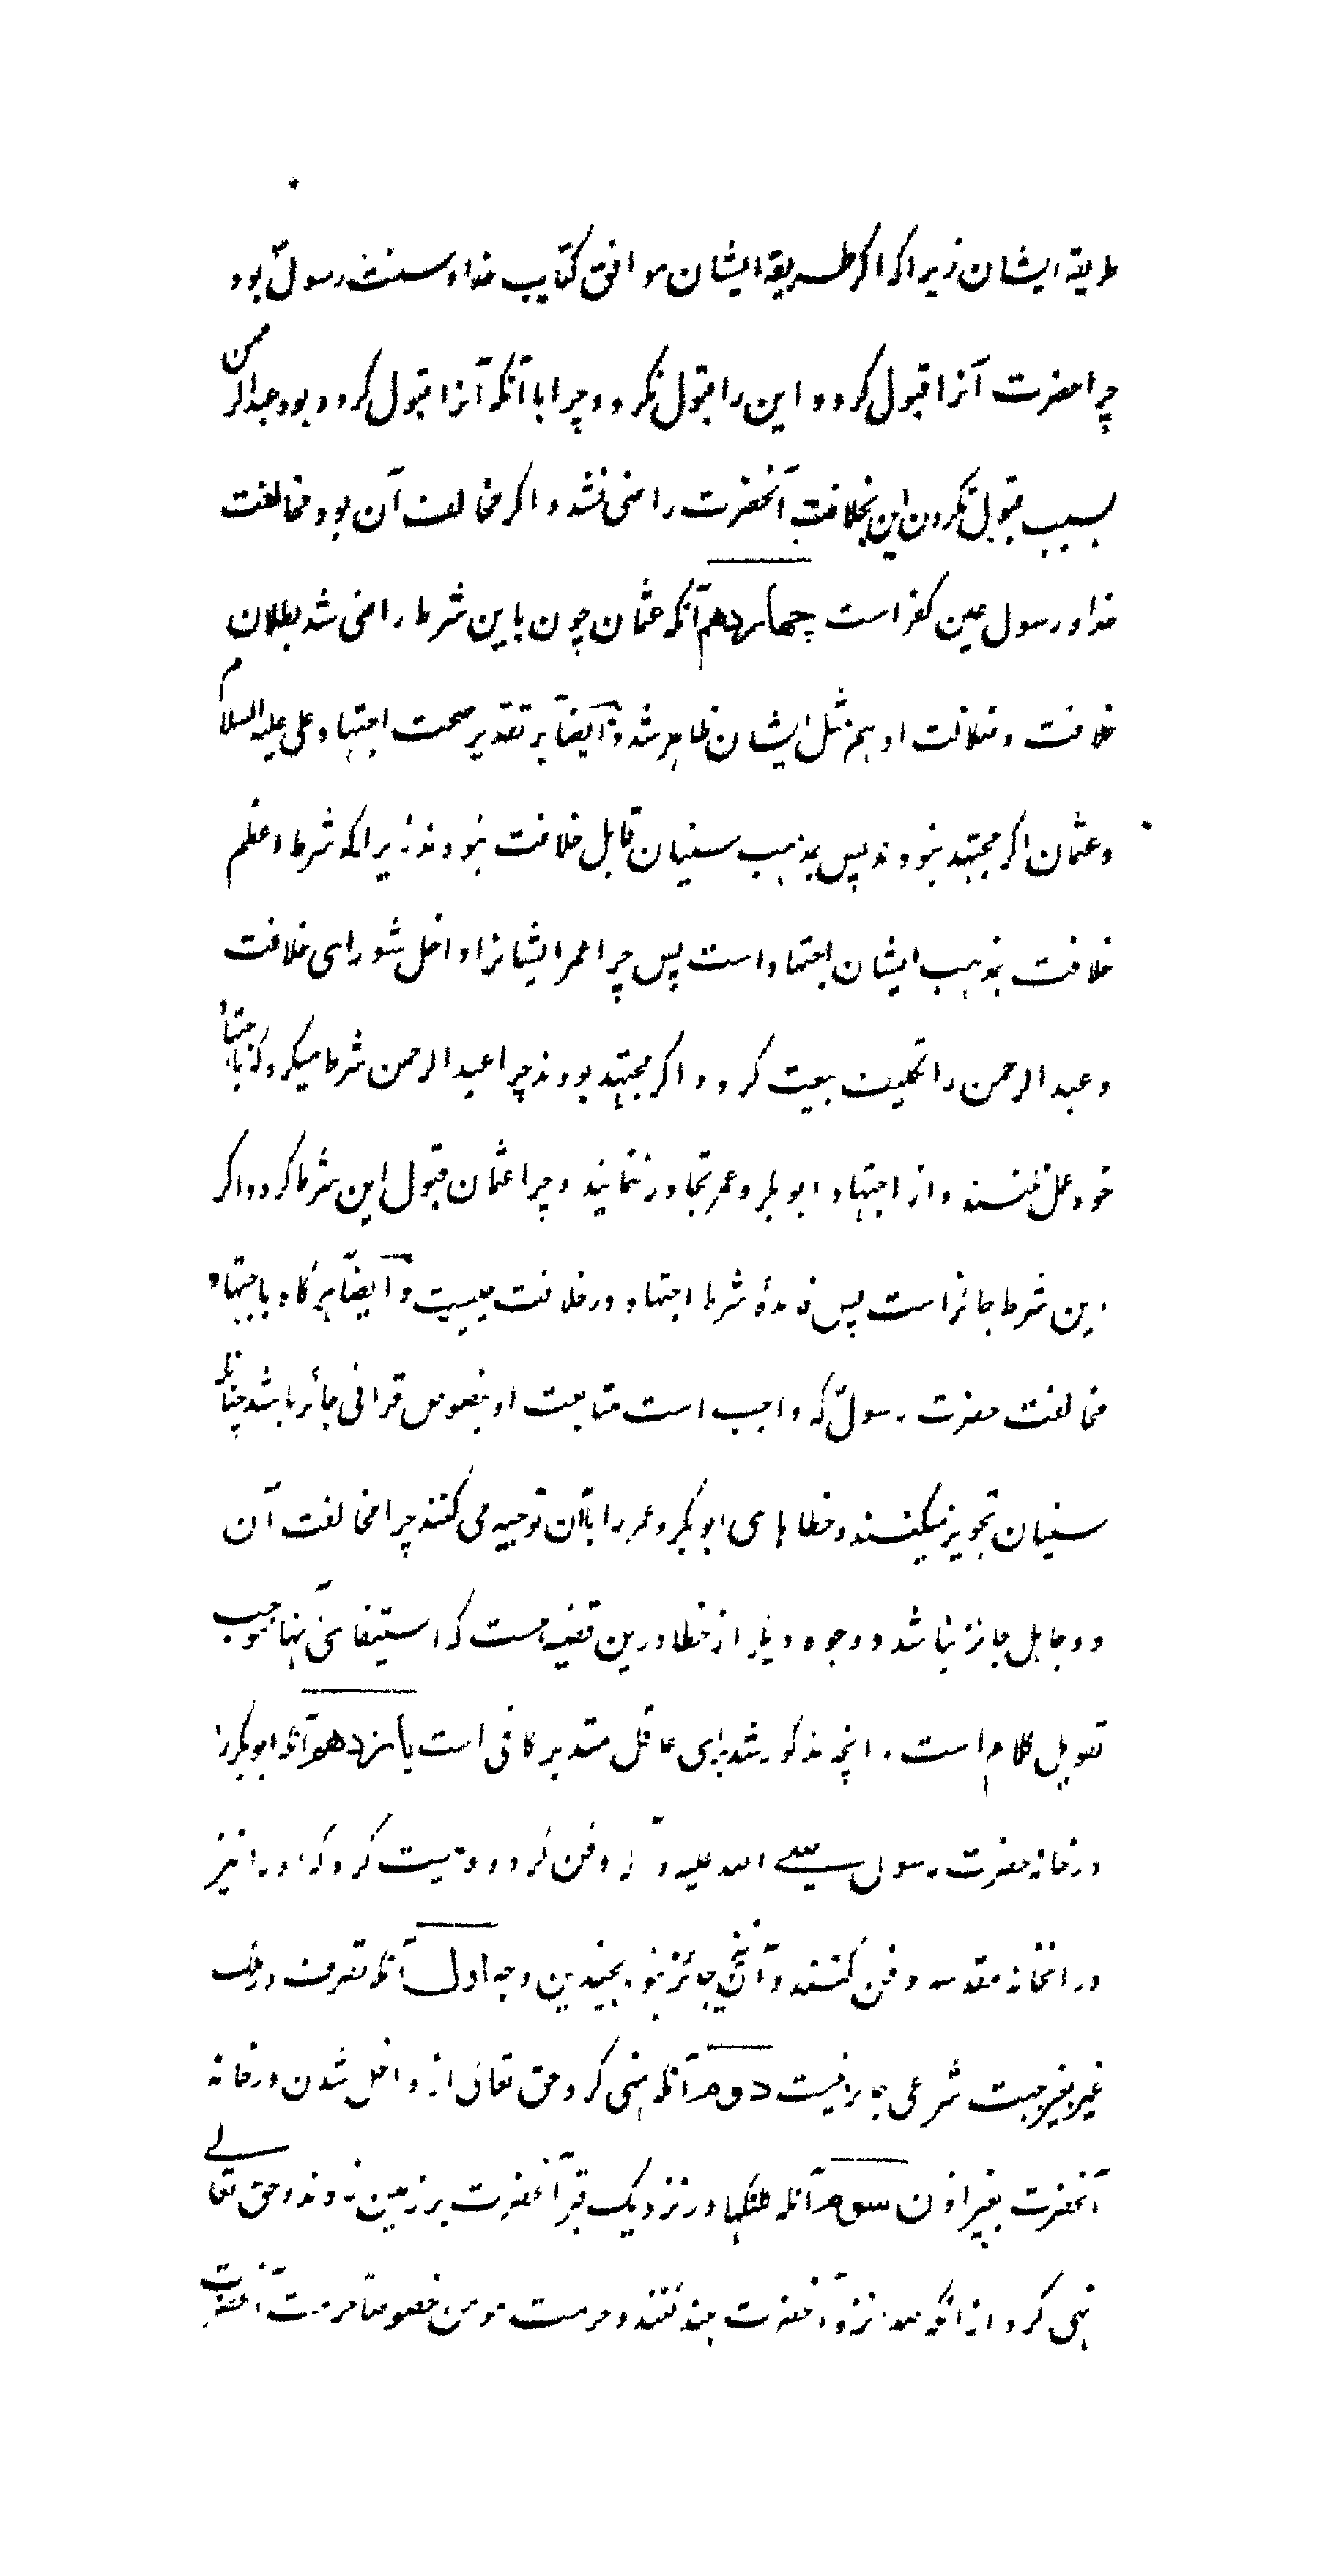 طریقهٔ ایشان زیرا که اگر طریقهٔ ایشان موافق کتاب خدا و سنت رسولؐ بود
چرا حضرت آنرا قبول کرد و این را قبول نکرد و چرا با آنکه آنرا قبول کرده بود عبدالرحمن
بسبب قبول نکردن این بخلافت آنحضرت راضی نشد و اگر مخالف آن بود مخالفت
خدا و رسول عین کفر است چهاردهم آنکه عثمان چون باین شرط راضی شد بطلان
خلافت و ضلالت او هم مثل ایشان ظاهر شد و ایضاً بر تقدیر صحت اجتهاد علی علیه السلام
و عثمان اگر مجتهد نبودند پس بمذهب سنیان قابل خلافت نبودند زیرا که شرط اعظم
خلافت بمذهب ایشان اجتهاد است پس چرا عمر ایشانرا داخل شورای خلافت
و عبدالرحمن را تکلیف بیعت کرد و اگر مجتهد بودند چرا عبدالرحمن شرط میکرد که باجتهاد
خود عمل نکنند و از اجتهاد ابوبکر و عمر تجاوز ننمایند و چرا عثمان قبول این شرط کرد و اگر
این شرط جائز است پس فائدهٔ شرط اجتهاد در خلافت چیست و ایضاً هرگاه باجتهاد
مخالفت حضرت رسولؐ که واجب است متابعت او بنصوص قرآنی جائز باشد چنانکه
سنیان تجویز میکنند و خطاهای ابوبکر و عمر را بآن توجیه می کنند چرا مخالفت آن
دو جاهل جائز نباشد و وجوه دیگر از خطا درین قضیه هست که استیفای آنها موجب
تطویل کلام است. انچه مذکور شد برای عاقل متدبر کافی است پانزدهم آنکه ابوبکر را
در خانهٔ حضرت رسول صلی الله علیه و آله دفن کردند و وصیت کرد که او را نیز
در انخانهٔ مقدسه دفن کنند و آن جائز نبود بچندین وجه اول آنکه تصرف در ملک
غیر بغیر جهت شرعی جایز نیست دوم آنکه نهی کرد حق تعالی از داخل شدن در خانهٔ
آنحضرت بغیر اذن سوم آنکه کلنگها در نزدیک قبر آنحضرت بر زمین زدند و حق تعالی
نهی کرد از آنکه صدا نزد آنحضرت بلند کنند و حرمت مومن خصوصاً حرمت آنحضرت